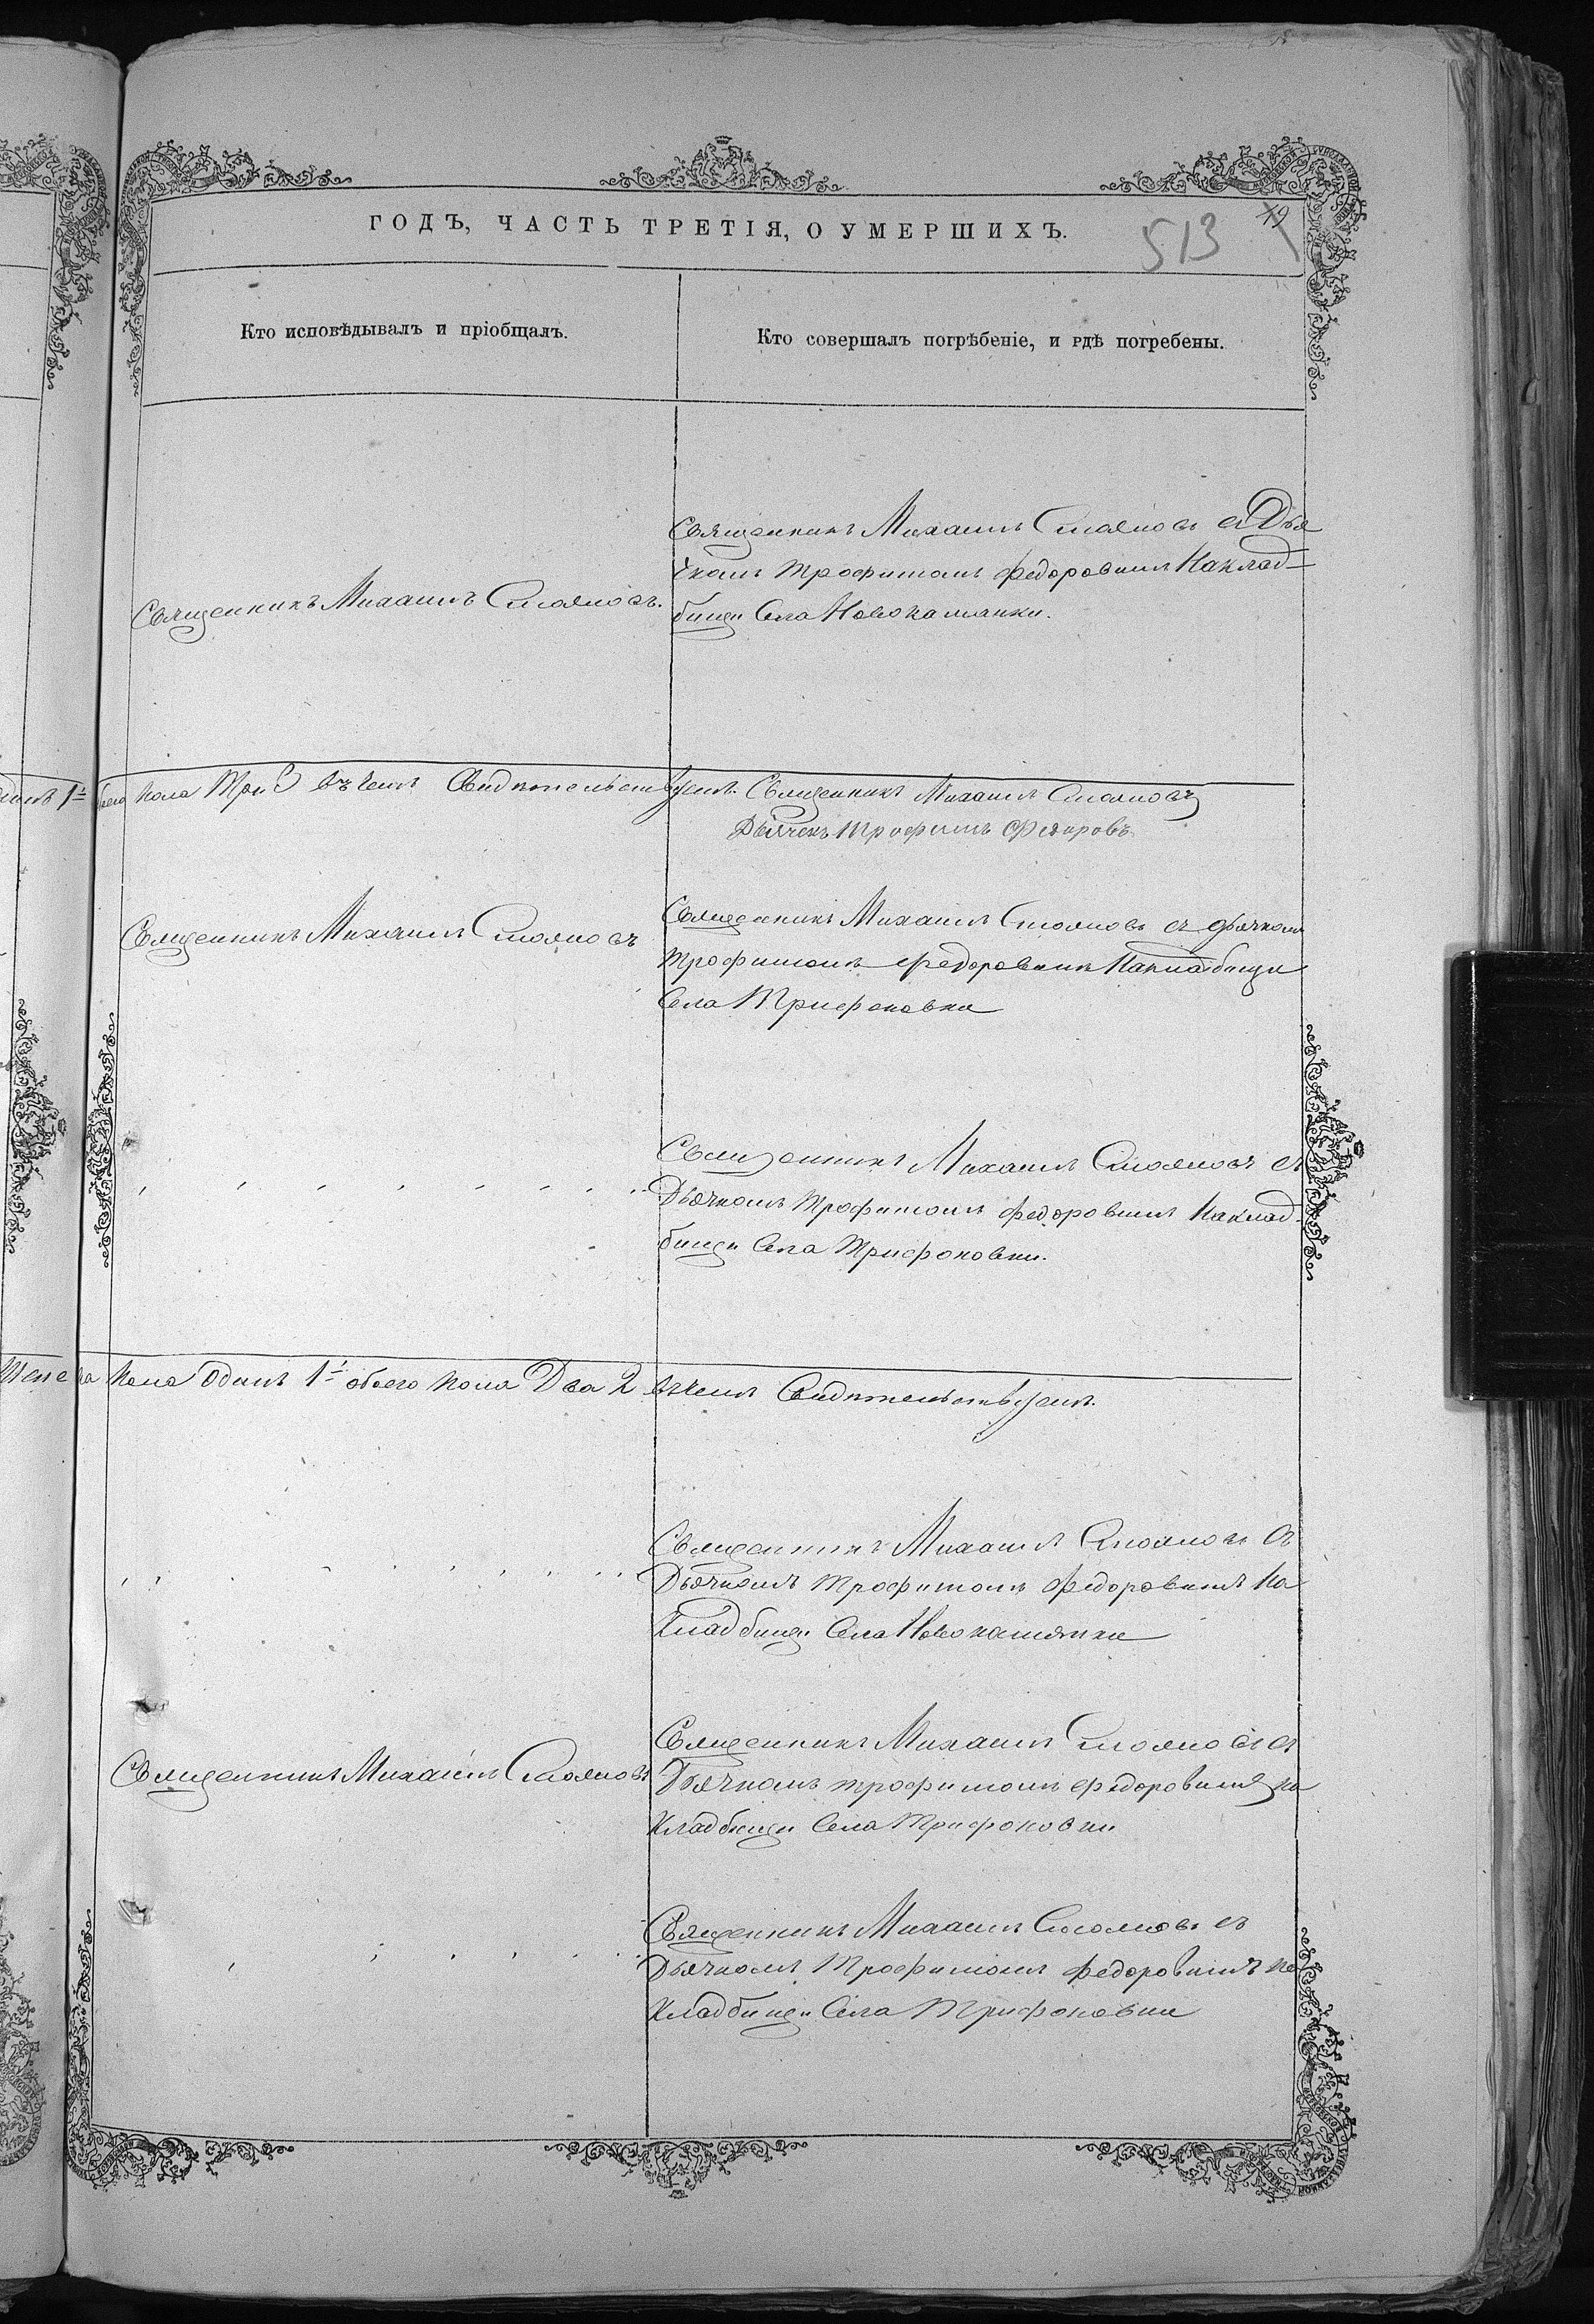 ГОДЪ, ЧАСТЬ ТРЕТІЯ, О УМЕРШИХЪ.
513
19
Кто исповѣдывалъ и пріобщалъ.
Кто совершалъ погрѣбеніе, и гдѣ погребены.
Священникъ Михаилъ Стояновъ съ Дья
чкомъ Трофимомъ Федоровимъ Наклад-
бищи Села Новокаманки.
Священникъ Михаилъ Стояновъ.
пола Три 3 въ чемъ Свидѣтельствуемъ. Священникъ Михаилъ Стояновъ
Дьячекъ Трофимъ Федоровъ
Священникъ Михаилъ Стояновъ
Священникъ Михаилъ Стояновъ съ дьячкомъ
Трофимомъ Федоровимъ Накладбищи
Села Трифоновки
Священникъ Михаилъ Стояновъ съ
Дьячкомъ Трофимомъ Федоровимъ Наклад-
бищи Села Трифоновки.
пола Одинъ 1 обоего пола Два 2 въ чемъ Свидѣтельствуемъ.
Священникъ Михаилъ Стояновъ Съ
Дьячкомъ Трофимомъ Федоровимъ На
Кладбищи Села Новокаманки
Священникъ Михаилъ Стояновъ
Священникъ Михаилъ Стояновъ съ
Дьячкомъ Трофимомъ Федоровимъ на
Кладбищи Села Трифоновки
Священникъ Михаилъ Стояновъ съ
Дьячкомъ Трофимомъ Федоровимъ на
Кладбищи Села Трифоновки